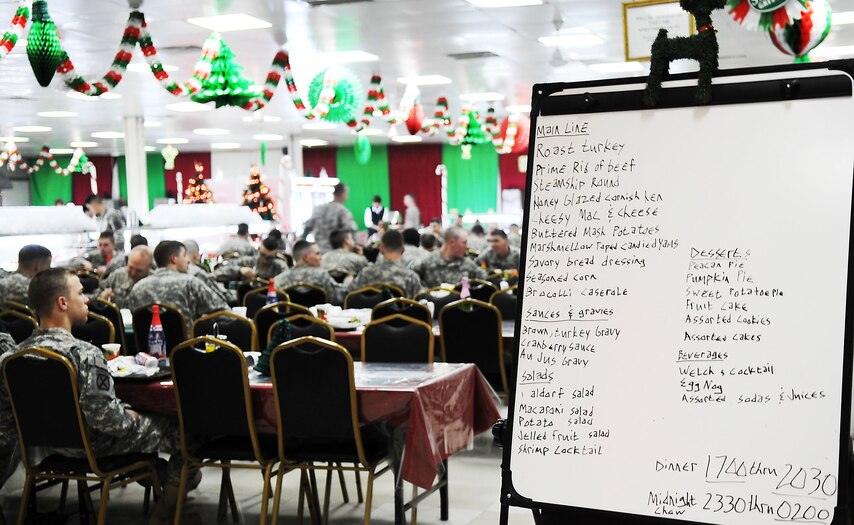 Main Line
Roast turkey
Prime Rib of beef
Steamship Round
Honey Glazed Cornish hen
Cheesy Mac & Cheese
Buttered Mash Potatoes
Marshmellow Toped Candied Yams
Savory bread dressing
Seasoned corn
Brocolli Caserole
Sauces & gravies
Brown, turkey Gravy
Cranberry Sauce
Au Jus Gravy
Salads
aldorf salad
Macaroni salad
Potato salad
Jelled fruit salad
Shrimp Cocktail
Desserts
Peacan Pie
Pumpkin Pie
Sweet Potatoe Pie
Fruit Cake
Assorted Cookies
Assorted Cakes
Beverages
Welch's Cocktail
Egg Nog
Assorted Sodas & Juices
Dinner 1700 thru 2030
Midnight Chow 2330 thru 0200